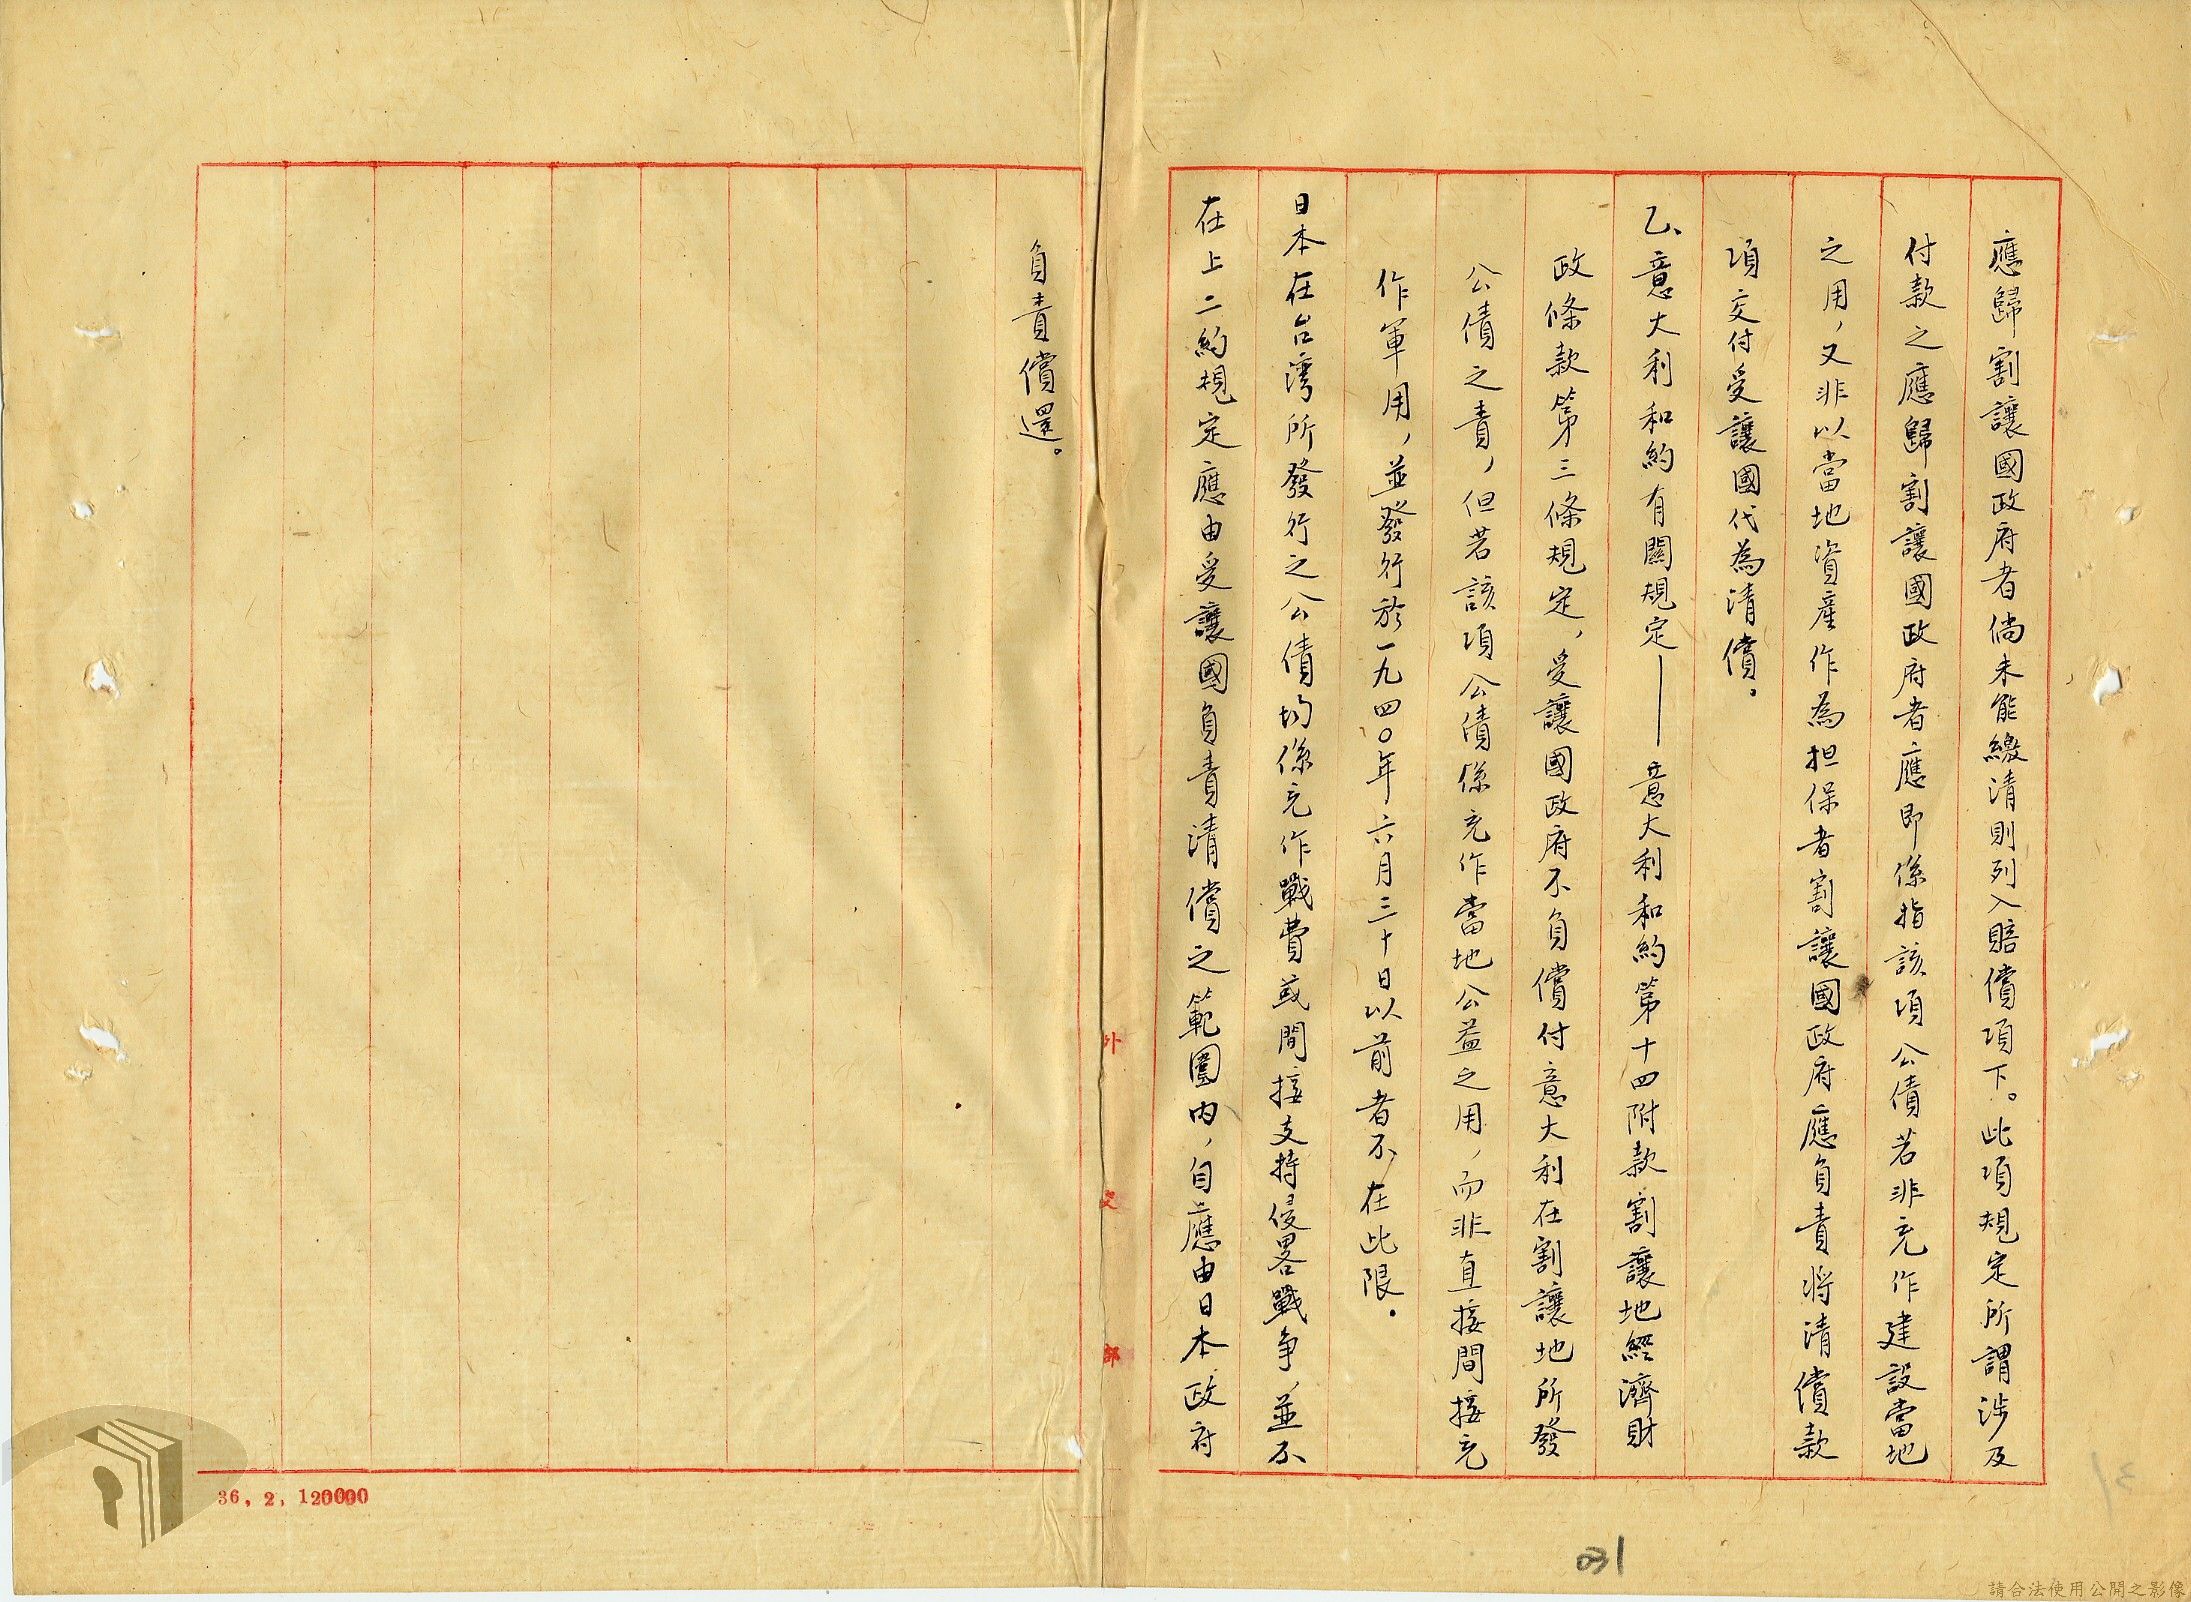 應歸割讓國政府者倘未能繳清則列入賠償項下。此項規定所謂涉及
付款之應歸割讓國政府者應即係指該項公債若非充作建設當地
之用，又非以當地資產作為担保者割讓國政府應負責將清償款
項交付受讓國代為清償。
乙、意大利和約有關規定——意大利和約第十四附款割讓地經濟財
政條款第三條規定，受讓國政府不負償付意大利在割讓地所發
公債之責，但若該項公債係充作當地公益之用，而非直接間接充
作軍用，並發行於一九四〇年六月三十日以前者不在此限。
日本在台湾所發行之公債均係充作戰費或間接支持侵畧戰争，並不
在上二約規定應由受讓國負責清償之範圍内，自應由日本政府
負責償還。
外交部
36, 2, 120000
031
31
請合法使用公開之影像